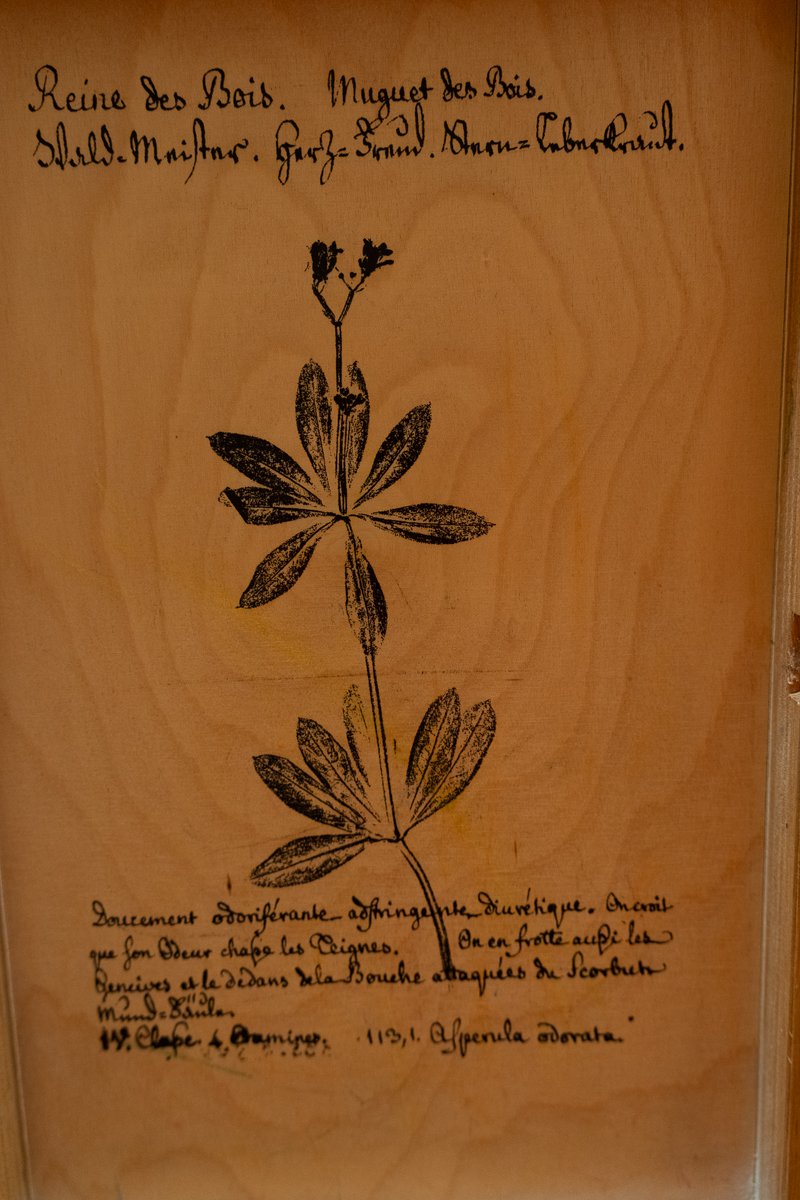 Reine des Bois. Muguet des Bois.
Wald-Meister. Herz=Freud. Stern=Leberkraut.
Doucement odoriférante adstringente diurétique. On croit
que son Odeur chasse les Teignes. On en frotte aussi les
Gencives et le dedans de la Bouche attaquées du Scorbut
Mund=Fäule.
IV. Classe 4 Etamines. 113,1. Asperula odorata.